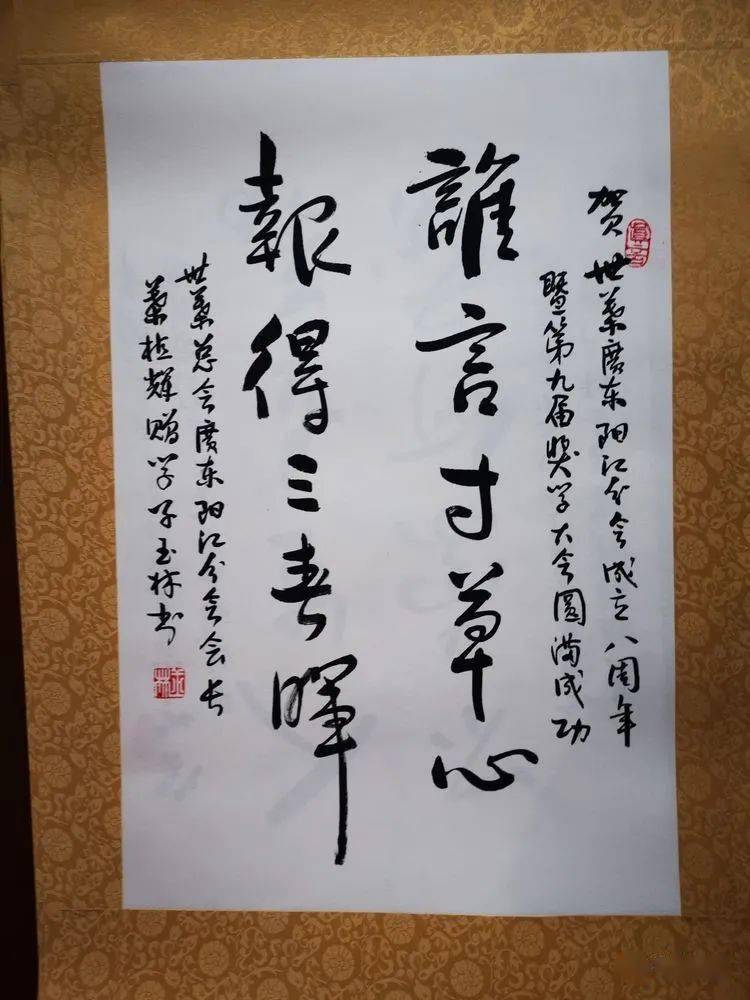 贺世叶广东阳江分会成立八周年
暨第九届奖学大会圆满成功
誰言寸草心
報得三春暉
世叶总会广东阳江分会会长
植辉赠学子玉林书